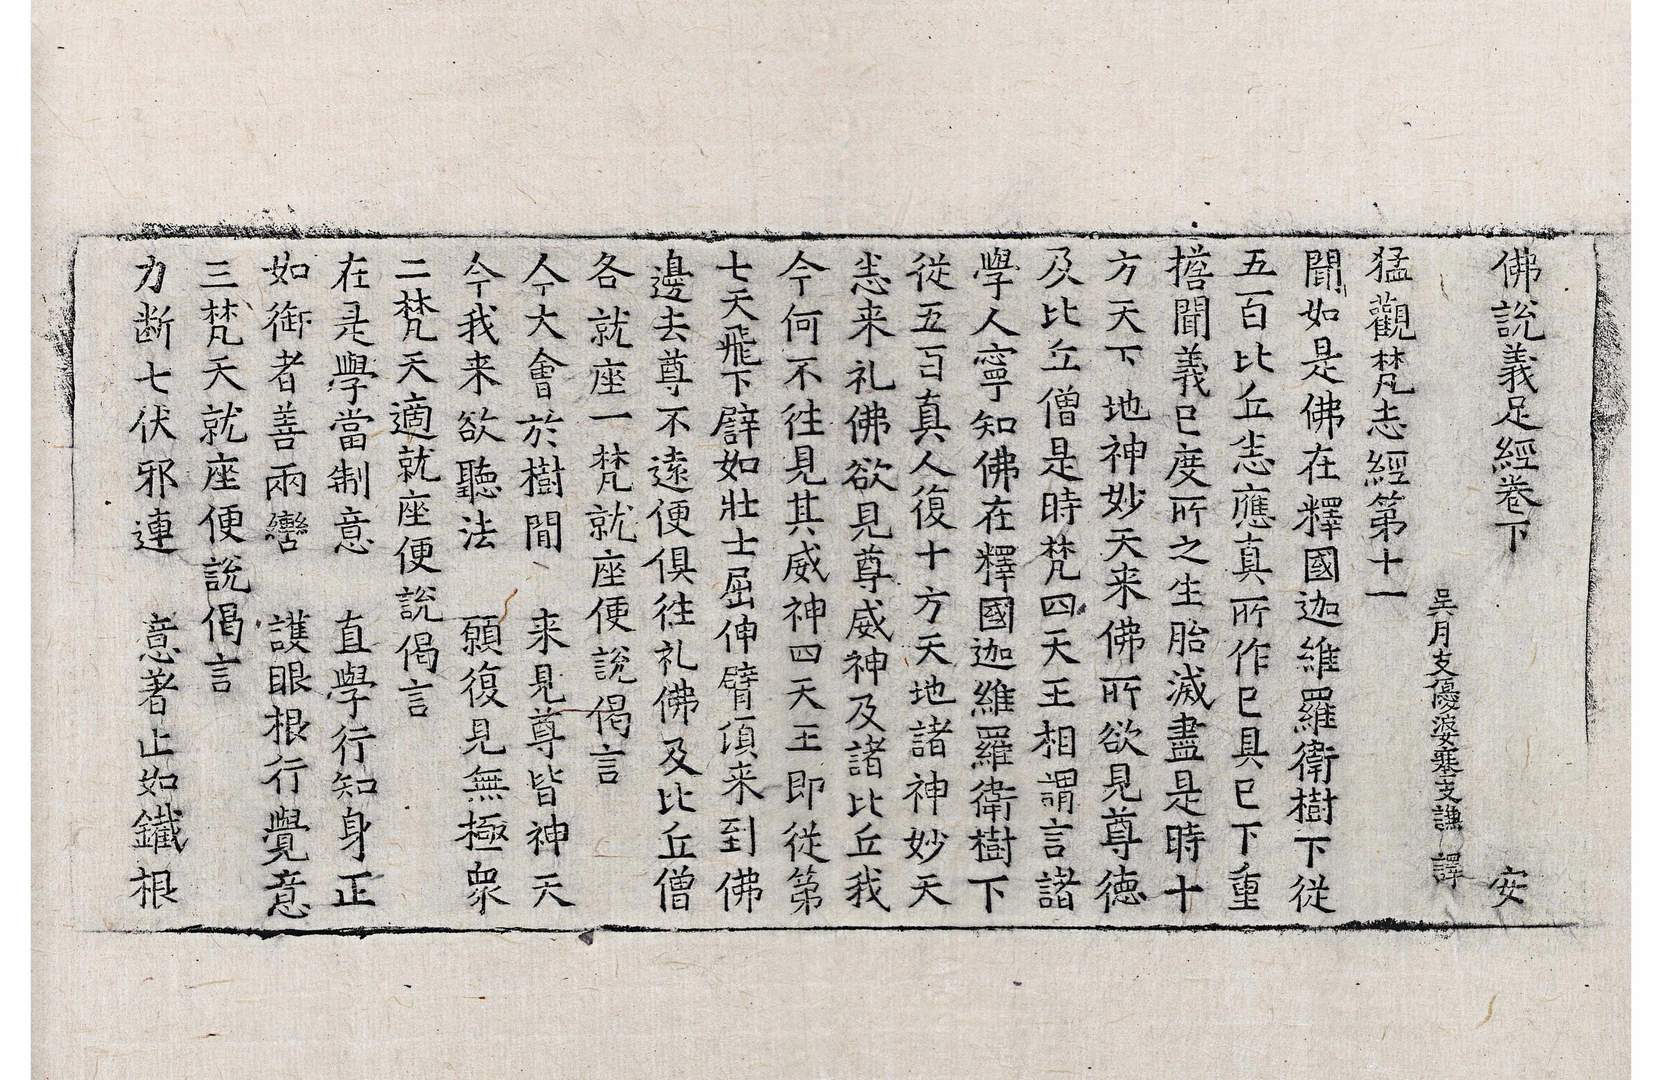 佛說義足經卷下 安
吳月支優婆塞支謙 譯
猛觀梵志經第十一
聞如是佛在釋國迦維羅衛樹下從
五百比丘悉應真所作已具已下重
擔聞義已度所之生胎滅盡是時十
方天下地神妙天来佛所欲見尊德
及比丘僧是時梵四天王相謂言諸
學人寧知佛在釋國迦維羅衛樹下
從五百真人復十方天地諸神妙天
悉来礼佛欲見尊威神及諸比丘我
今何不往見其威神四天王即從第
七天飛下譬如壯士屈伸臂頃来到佛
邊去尊不遠便俱往礼佛及比丘僧
各就座一梵就座便說偈言
今大會於樹間 来見尊皆神天
今我来欲聽法 願復見無極衆
二梵天適就座便說偈言
在是學當制意 直學行知身正
如御者善兩轡 護眼根行覺意
三梵天就座便說偈言
力断七伏邪連 意著止如鐵根